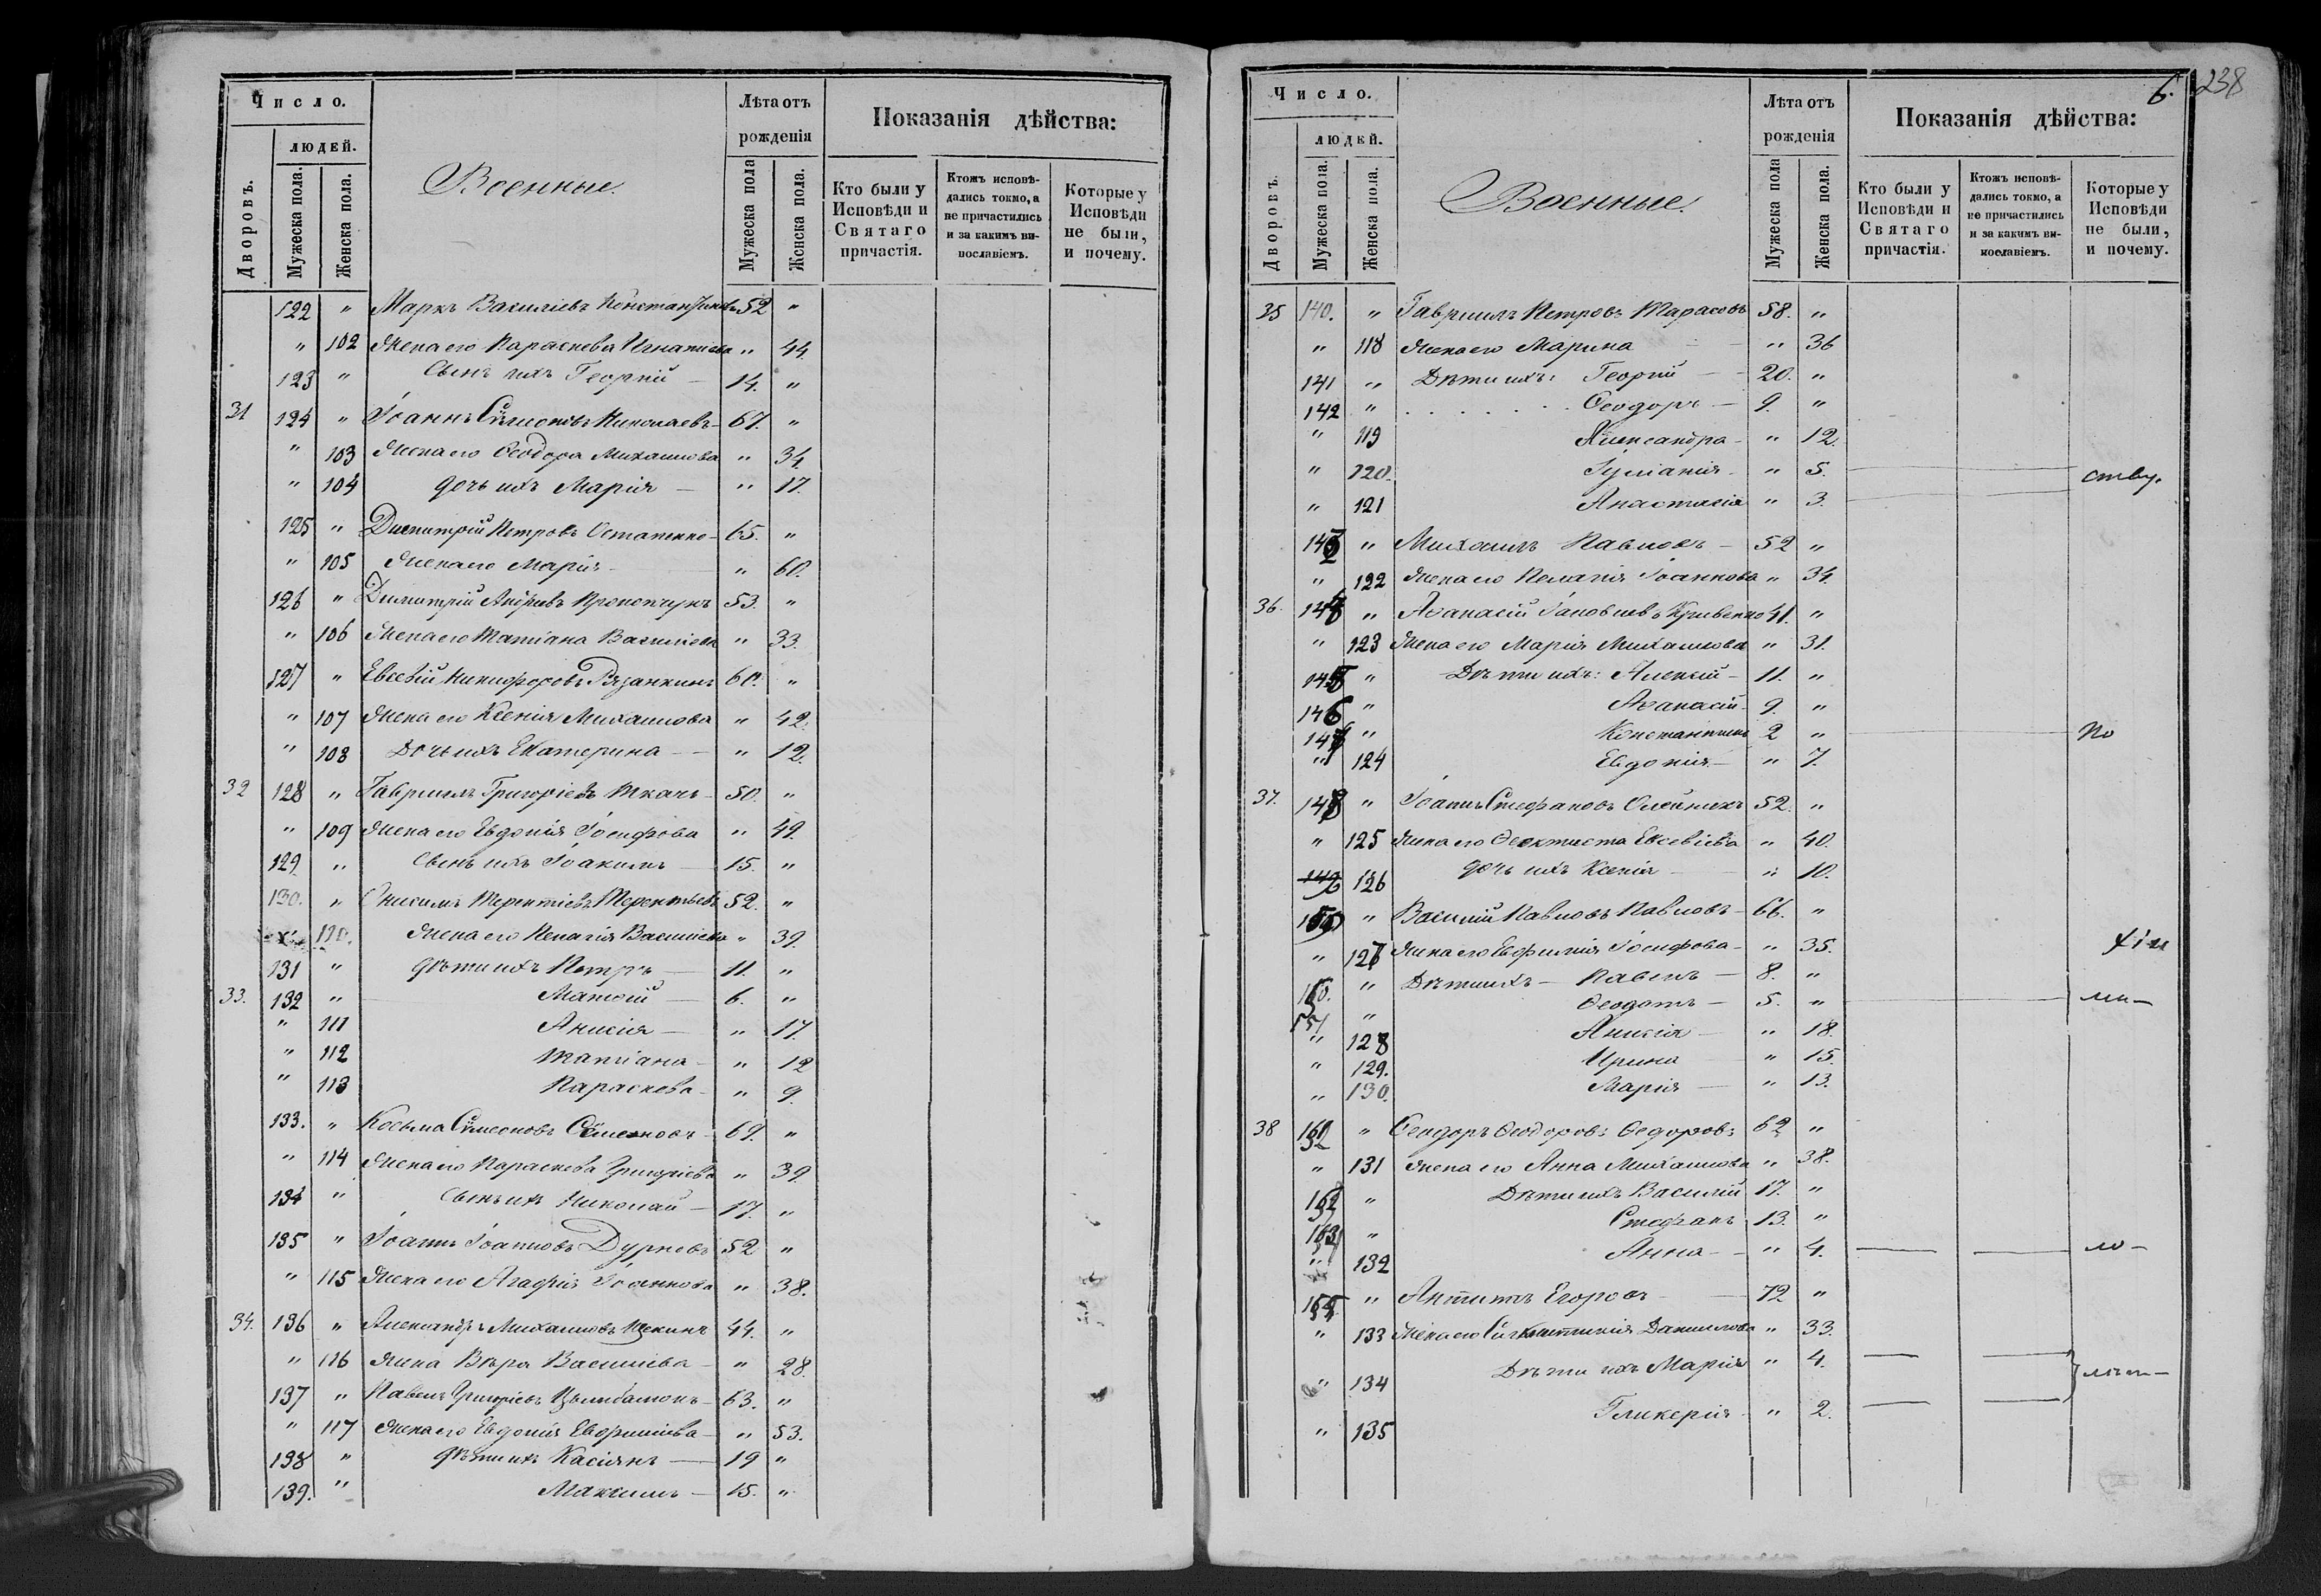 Число.
людей.
Дворовъ.
Мужеска пола.
Женска пола.
Военные.
Лѣта отъ рожденія
Мужеска пола
Женска пола.
Показанія дѣйства:
Кто были у Исповѣди и Святаго причастія.
Ктожъ исповѣ-дались токмо, а не причастились и за какимъ ви-нословіемъ.
Которые у Исповѣди не были, и почему.
122 " Маркъ Василіевъ Константиновъ 52 "
" 102 Жена его Параскева Игнатіева " 44
123 " Сынъ ихъ Георгій — 14. "
31 124 " Іоаннъ Симеоновъ Николаевъ — 67. "
" 103 Жена его Ѳеодора Михаилова " 34.
" 104 дочь ихъ Марія — " 17.
125 " Димитрій Петровъ Остапенко — 65. "
" 105 Жена его Марія — " 60.
126 " Димитрій Андреевъ Прокопчукъ 53. "
" 106 Жена его Татіана Василіева " 33.
127 " Евсевій Никифоровъ Рязанкинъ 60. "
" 107 Жена его Ксенія Михаилова " 42.
" 108 Дочь ихъ Екатерина — " 12.
32 128 " Гавриилъ Григоріевъ Ткачъ — 50. "
" 109 Жена его Евдокія Іосифова " 49.
129 " Сынъ ихъ Іоакимъ — 15. "
130. " Онисимъ Терентіевъ Терентьевъ 52. "
110. Жена его Пелагія Василіева " 39.
131 " дѣти ихъ Петръ — 11. "
33. 132 " Матѳій — 6. "
" 111 Анисія — " 17.
" 112 Татіана — " 12
" 113 Параскева — " 9.
133. " Косьма Симеоновъ Семеновъ — 69. "
" 114 Жена его Параскева Григоріева " 39.
134 " Сынъ ихъ Николай — 17. "
135 " Іоаннъ Іоанновъ Дурневъ 52 "
" 115 Жена его Агафія Іоаннова " 38.
34. 136 " Александръ Михаиловъ Щекинъ 44. "
" 116 Жена Вѣра Василіева — " 28.
137 " Павелъ Григоріевъ Цымбалюкъ — 63. "
" 117 Жена его Евдокія Евфиміева — " 53.
138 " дѣти ихъ Касіянъ — 19 "
139. " Максимъ — 15. "
6. 238
Число.
людей.
Дворовъ.
Мужеска пола.
Женска пола.
Военные.
Лѣта отъ рожденія
Мужеска пола
Женска пола.
Показанія дѣйства:
Кто были у Исповѣди и Святаго причастія.
Ктожъ исповѣ-дались токмо, а не причастились и за какимъ ви-нословіемъ.
Которые у Исповѣди не были, и почему.
35 140. " Гавриилъ Петровъ Тарасовъ 58. "
" 118 Жена его Марина — " 36
141 " Дѣти ихъ: Георгій — 20. "
142 " Ѳеодоръ — 9. "
" 119 Александра — " 12.
" 120. Іуліанія — " 5. ству.
" 121 Анастасія " 3.
" Михаилъ Павловъ — 52 "
" 122 Жена его Пелагія Іоаннова " 34.
36. " Аѳанасій Іаковлевъ Кривенко 41. "
" 123 Жена его Марія Михаилова " 31.
" Дѣти ихъ: Алексій — 11. "
146 " Аѳанасій — 9. "
147 " Константинъ 2 " по
" 124 Евдокія — " 7.
37. 148 " Іоаннъ Стефановъ Олейникъ 52. "
" 125 Жена его Ѳеоктиста Евсевіева " 40.
126 дочь ихъ Ксенія — " 10.
" Василій Павловъ Павловъ — 66. "
" 127 Жена его Евфимія Іосифова — " 35.
" Дѣти ихъ — Павелъ — 8. "
151 " Ѳеодотъ — 5. " ма —
" 128 Анисія — " 18.
" 129. Ирина — " 15.
" 130. Марія — " 13.
38 152 " Ѳеодоръ Ѳеодоровъ Ѳедоровъ 62 "
" 131 Жена его Анна Михаилова " 38.
" Дѣти ихъ Василій 17. "
" Стефанъ 13. "
" 132 Анна — " 4. ло —
155 " Антипъ Егоровъ — 72 "
" 133 Жена его Данилова " 33.
" 134 Дѣти ихъ Марія " 4.
" 135 Гликерія — " 2.